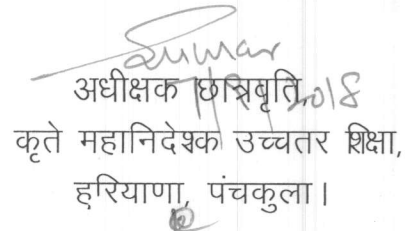 अधीक्षक छात्रवृति,
कृते महानिदेश्क उच्चतर शिक्षा,
हरियाणा, पंचकुला।